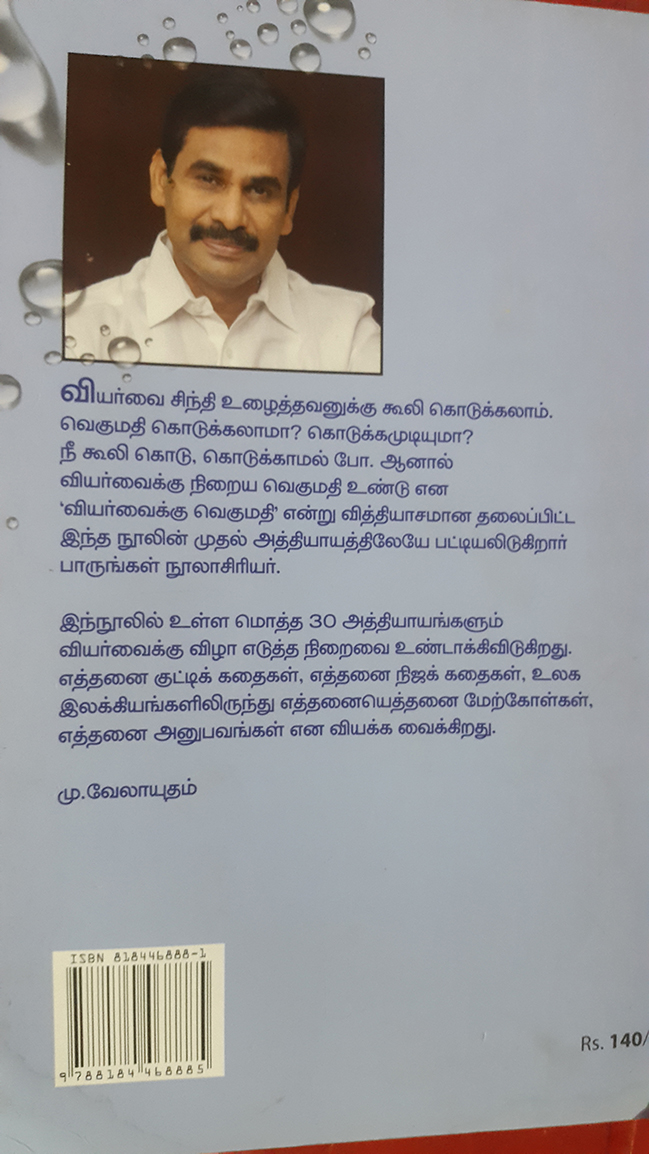 வியர்வை சிந்தி உழைத்தவனுக்கு கூலி கொடுக்கலாம்.
வெகுமதி கொடுக்கலாமா? கொடுக்கமுடியுமா?
நீ கூலி கொடு, கொடுக்காமல் போ. ஆனால்
வியர்வைக்கு நிறைய வெகுமதி உண்டு என
‘வியர்வைக்கு வெகுமதி’ என்று வித்தியாசமான தலைப்பிட்ட
இந்த நூலின் முதல் அத்தியாயத்திலேயே பட்டியலிடுகிறார்
பாருங்கள் நூலாசிரியர்.
இந்நூலில் உள்ள மொத்த 30 அத்தியாயங்களும்
வியர்வைக்கு விழா எடுத்த நிறைவை உண்டாக்கிவிடுகிறது.
எத்தனை குட்டிக் கதைகள், எத்தனை நிஜக் கதைகள், உலக
இலக்கியங்களிலிருந்து எத்தனையெத்தனை மேற்கோள்கள்,
எத்தனை அனுபவங்கள் என வியக்க வைக்கிறது.
மு.வேலாயுதம்
ISBN 818446888-1
9 788184 468885
Rs. 140/